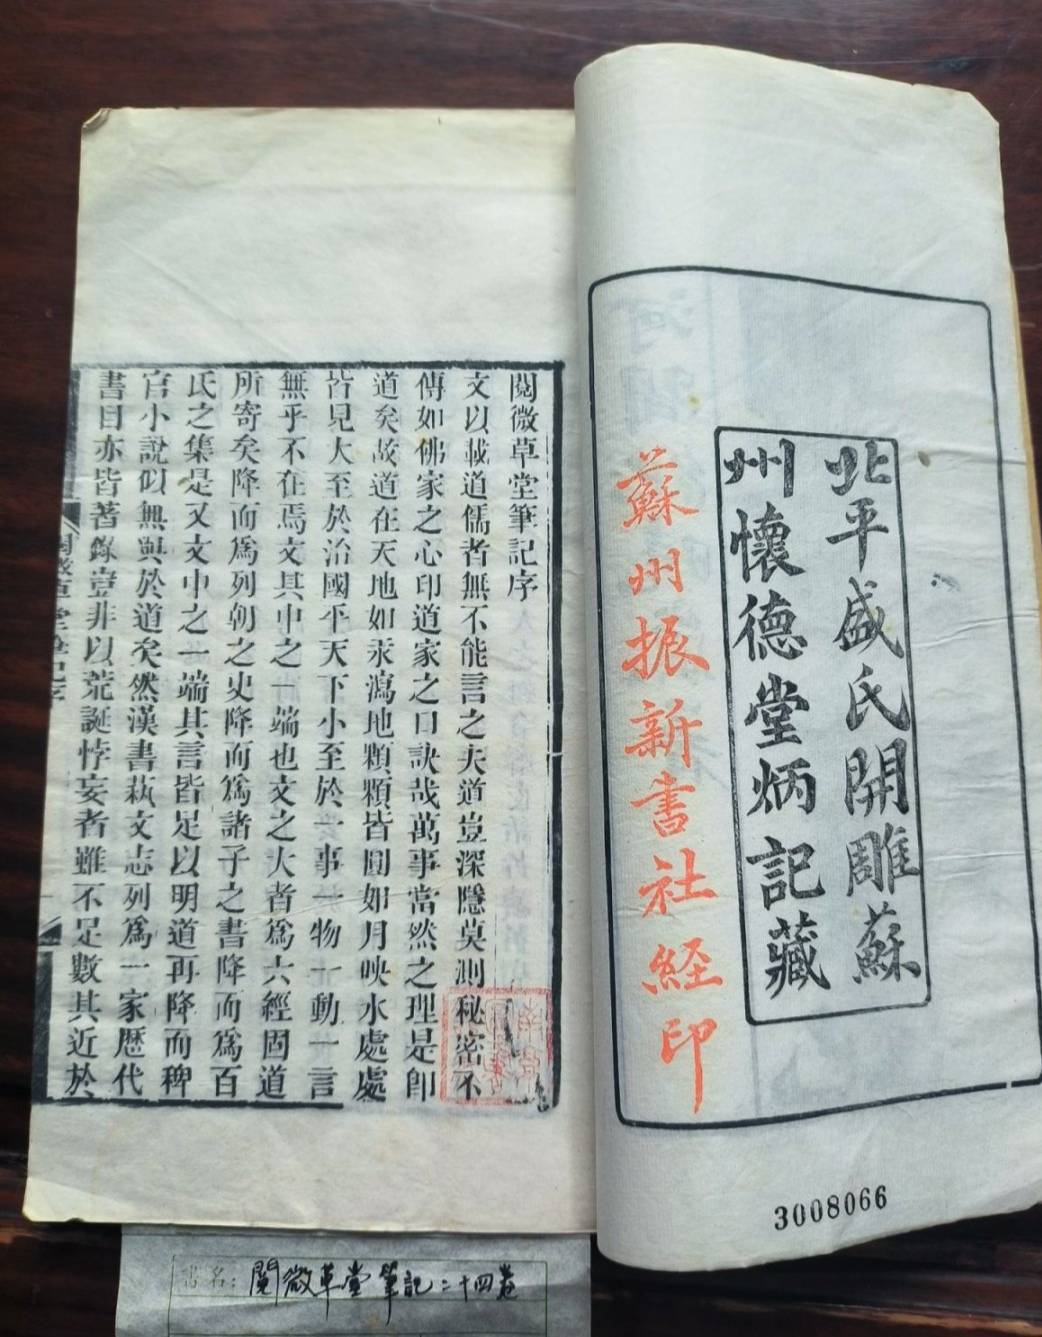 北平盛氏開雕蘇
州懷德堂炳記藏
蘇州振新書社経印
3008066
閱微草堂筆記序
文以載道儒者無不能言之夫道豈深隱莫測秘密不
傳如佛家之心印道家之口訣哉萬事當然之理是卽
道矣故道在天地如汞瀉地顆顆皆圓如月映水處處
皆見大至於治國平天下小至於一事一物一動一言
無乎不在焉文其中之一端也文之大者爲六經固道
所寄矣降而爲列朝之史降而爲諸子之書降而爲百
氏之集是又文中之一端其言皆足以明道再降而稗
官小說似無與於道矣然漢書蓺文志列爲一家歷代
書目亦皆著錄豈非以荒誕悖妄者雖不足數其近於
書名:閱微草堂筆記二十四卷